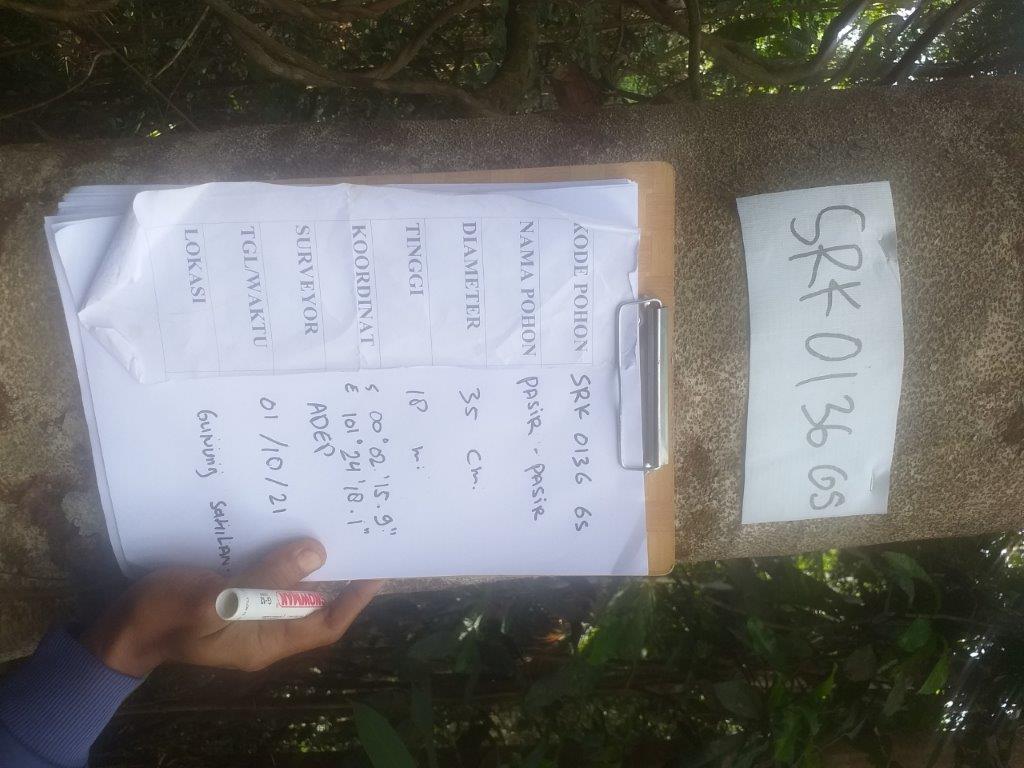 SRK 0136 GS
KODE POHON SRK 0136 GS
NAMA POHON PASIR - PASIR
DIAMETER 35 cm.
TINGGI 18 m.
KOORDINAT S 00°02'15.9"
E 101°24'18.1"
SURVEYOR ADEP
TGL/WAKTU 01/10/21
LOKASI Gunung SahiLan.
SNOWMAN